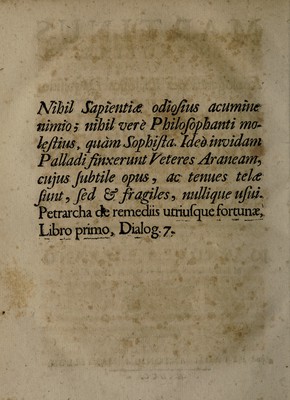 Nihil Sapientiæ odiosius acumine
nimio; nihil verè Philosophanti mo-
lestius, quàm Sophista. Ideò invidam
Palladi finxerunt Veteres Araneam,
cujus subtile opus, ac tenues telæ
sunt, sed & fragiles, nullique usui.
Petrarcha de remediis utriusque fortunæ,
Libro primo, Dialog. 7.